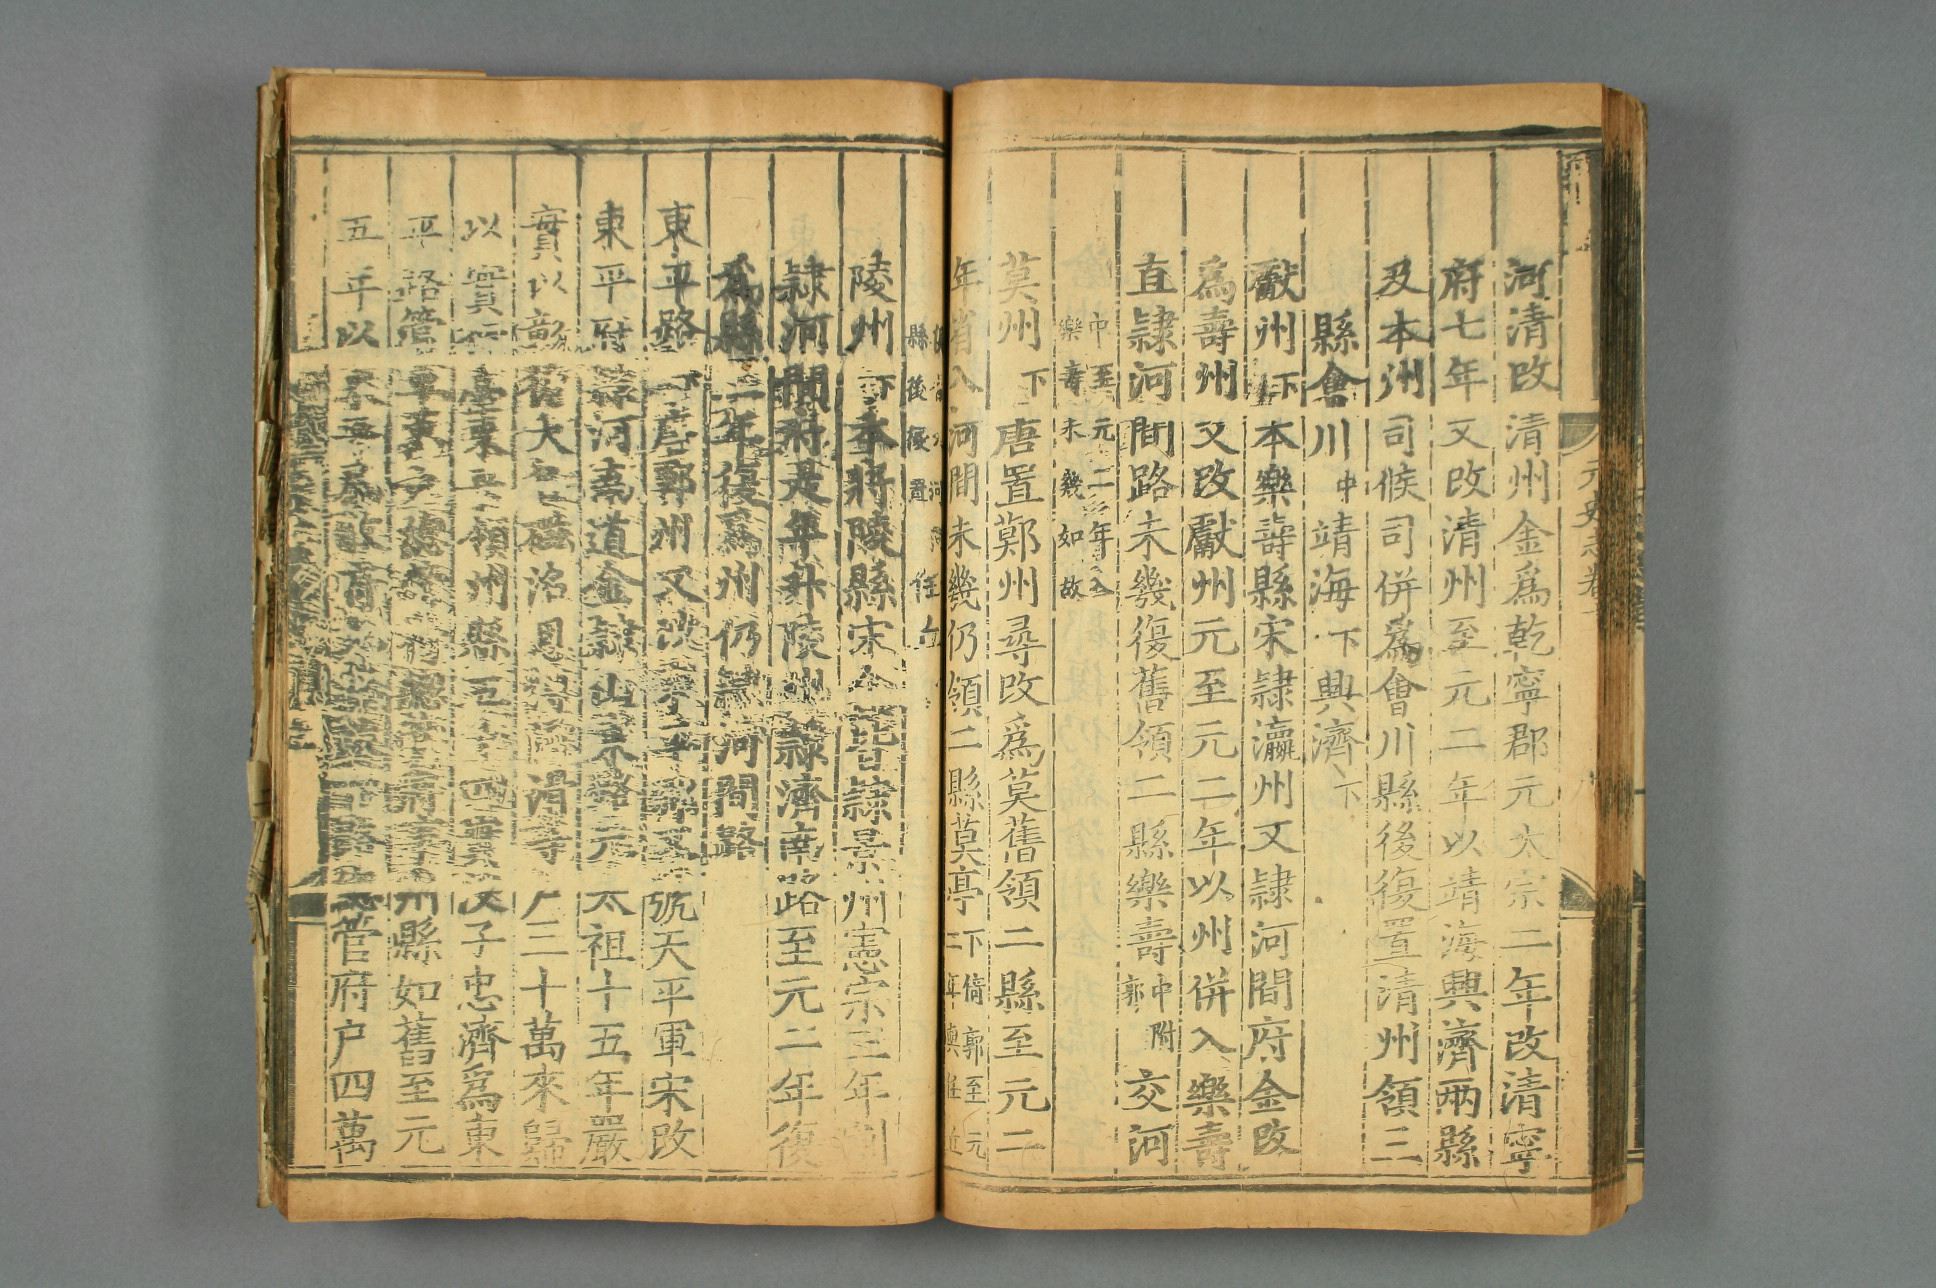 河清改清州金爲乾寧郡元太宗二年改清寧
府七年又改清州至元二年以靖海興濟兩縣
及本州司候司併爲會川縣後復置清州領三
縣會川中靖海下興濟下
獻州下本樂壽縣宋隸瀛州又隸河間府金改
爲壽州又改獻州元至元二年以州併入樂壽
直隸河間路未幾復舊領二縣樂壽中附郭交河
中至元二年入
樂壽未幾如故
莫州下唐置鄚州尋改爲莫舊領二縣至元二
年省入河間未幾仍領二縣莫亭下倚郭至元
縣後復置
陵州下本將陵縣宋金皆隸景州憲宗三年割
隸河間府是年升陵州隸濟南路至元二年復
爲縣三年復爲州仍隸河間路
東平路下唐鄆州又改 號天平軍宋改
東平府隸河南道金隸山東西路元太祖十五年嚴
實以彰德大名磁洺恩博濬滑等戶三十萬來歸
以實行臺東平領州縣五十四實沒子忠濟爲東
平路管軍萬戶總管 州縣如舊至元
五年以東平爲散府 下路總管府户四萬
元史志卷十